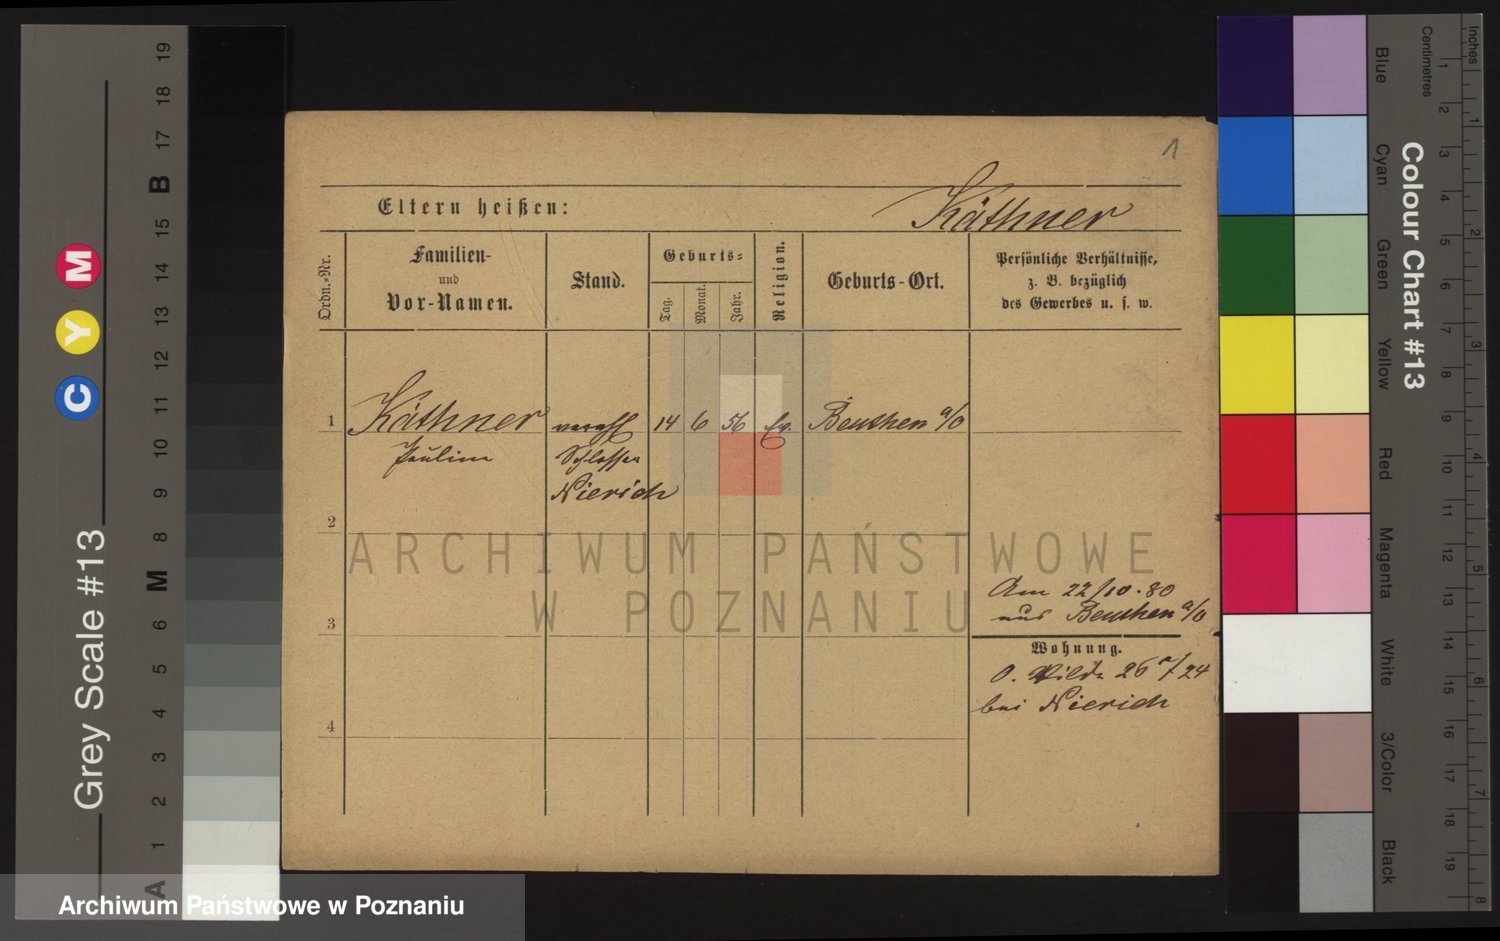 1
Käthner
Eltern heißen:
Ordn.-Nr.
Familien-
und
Vor-Namen.
Stand.
Geburts-
Tag.
Monat.
Jahr.
Religion.
Geburts-Ort.
Persönliche Verhältnisse,
z. B. bezüglich
des Gewerbes u. s. w.
1
Käthner
Pauline
verehl
Schlosser
Nierich
14 6 56 Ev. Beuthen a/O
2
3
4
Am 22/10.80
aus Beuthen a/O
Wohnung.
O. 26 24
bei Nierich
ARCHIWUM PAŃSTWOWE
W POZNANIU
Archiwum Państwowe w Poznaniu
Grey Scale #13
C Y M
A 1 2 3 4 5 6 M 8 9 10 11 12 13 14 15 B 17 18 19
Colour Chart #13
Blue
Cyan
Green
Yellow
Red
Magenta
White
3/Color
Black
Inches
1 2 3 4 5 6 7 8
Centimetres
1 2 3 4 5 6 7 8 9 10 11 12 13 14 15 16 17 18 19